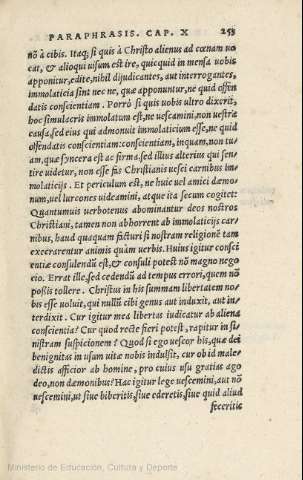 PARAPHRASIS. CAP. X 253
nō à cibis. Itaq; si quis à Christo alienus ad cœnam uo
cat, & alioqui uisum est ire, quicquid in mensa uobis
apponitur, edite, nihil dijudicantes, aut interrogantes,
immolaticia sint nec ne, quæ apponuntur, ne quid offen
datis conscientiam. Porrò si quis uobis ultro dixerit,
hoc simulacris immolatum est, ne uescamini, non uestra
causa, sed eius qui admonuit immolaticium esse, ne quid
offendatis conscientiam: conscientiam, inquam, non tu/
am, quæ syncera est ac firma, sed illius alterius qui sen/
tire uidetur, non esse fas Christianis uesci carnibus im/
molaticijs. Et periculum est, ne huic uel amici dæmo/
num, uel lurcones uideamini, atque ita secum cogitet:
Quantumuis uerbotenus abominantur deos nostros
Christiani, tamen non abhorrent ab immolaticijs car/
nibus, haud quaquam facturi si nostram religionē tam
execrarentur animis quàm uerbis. Huius igitur consci
entiæ consulendū est, & consuli potest nō magno nego
cio. Errat ille, sed cedendū ad tempus errori, quem nō
possis tollere. Christus in his summam libertatem no/
bis esse uoluit, qui nullū cibi genus aut induxit, aut in/
terdixit. Cur igitur mea libertas iudicatur ab aliena
conscientia? Cur quod recte fieri potest, rapitur in si/
nistram suspicionem? Quod si ego uescor his, quæ dei
benignitas in usum uitæ nobis indulsit, cur ob id male/
dictis afficior ab homine, pro cuius usu gratias ago
deo, non dæmonibus? Hac igitur lege uescemini, aut nō
uescemini, ut siue biberitis, siue ederetis, siue quid aliud
feceritis
Ministerio de Educación, Cultura y Deporte